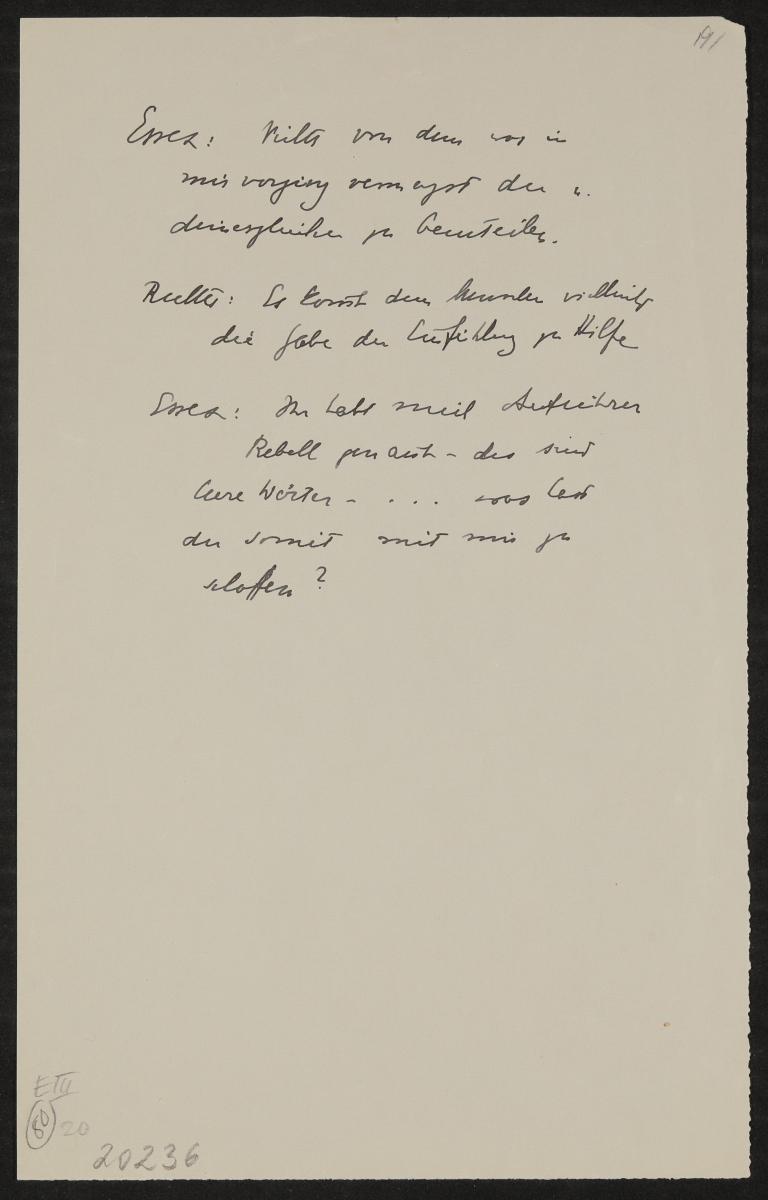 191
Essex: Nichts von dem was in
mir vorging vermagst du u.
deinesgleichen zu beurteilen.
Richter: Es kommt dem Menschen vielleicht
die Gabe der Einfühlung zu Hilfe
Essex: Ihr habt mich Aufrührer
Rebell genannt – das sind
leere Wörter – . . . was hast
du somit mit mir zu
schaffen?
E III
80 20
20236